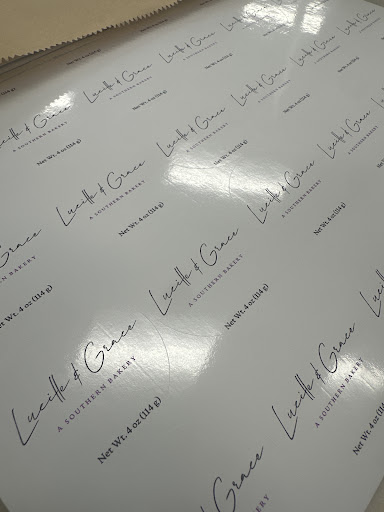 Lucille & Grace
A SOUTHERN BAKERY
Net Wt. 4 oz (114 g)
Lucille & Grace
A SOUTHERN BAKERY
Net Wt. 4 oz (114 g)
Lucille & Grace
A SOUTHERN BAKERY
Net Wt. 4 oz (114 g)
Lucille & Grace
A SOUTHERN BAKERY
Net Wt. 4 oz (114 g)
Lucille & Grace
A SOUTHERN BAKERY
Net Wt. 4 oz (114 g)
Lucille & Grace
A SOUTHERN BAKERY
Net Wt. 4 oz (114 g)
Lucille & Grace
A SOUTHERN BAKERY
Net Wt. 4 oz (114 g)
Lucille & Grace
A SOUTHERN BAKERY
Net Wt. 4 oz (114 g)
Grace
N BAKERY
et Wt. 4 oz (114 g)
Lucille & Grace
A SOUTHERN BAKERY
Net Wt. 4 oz (114 g)
Lucille & Grace
A SOUTHERN BAKERY
Net Wt. 4 oz (114 g)
Lucille & Grace
A SOUTHERN BAKERY
Net Wt. 4 oz (114
Grace
BAKERY